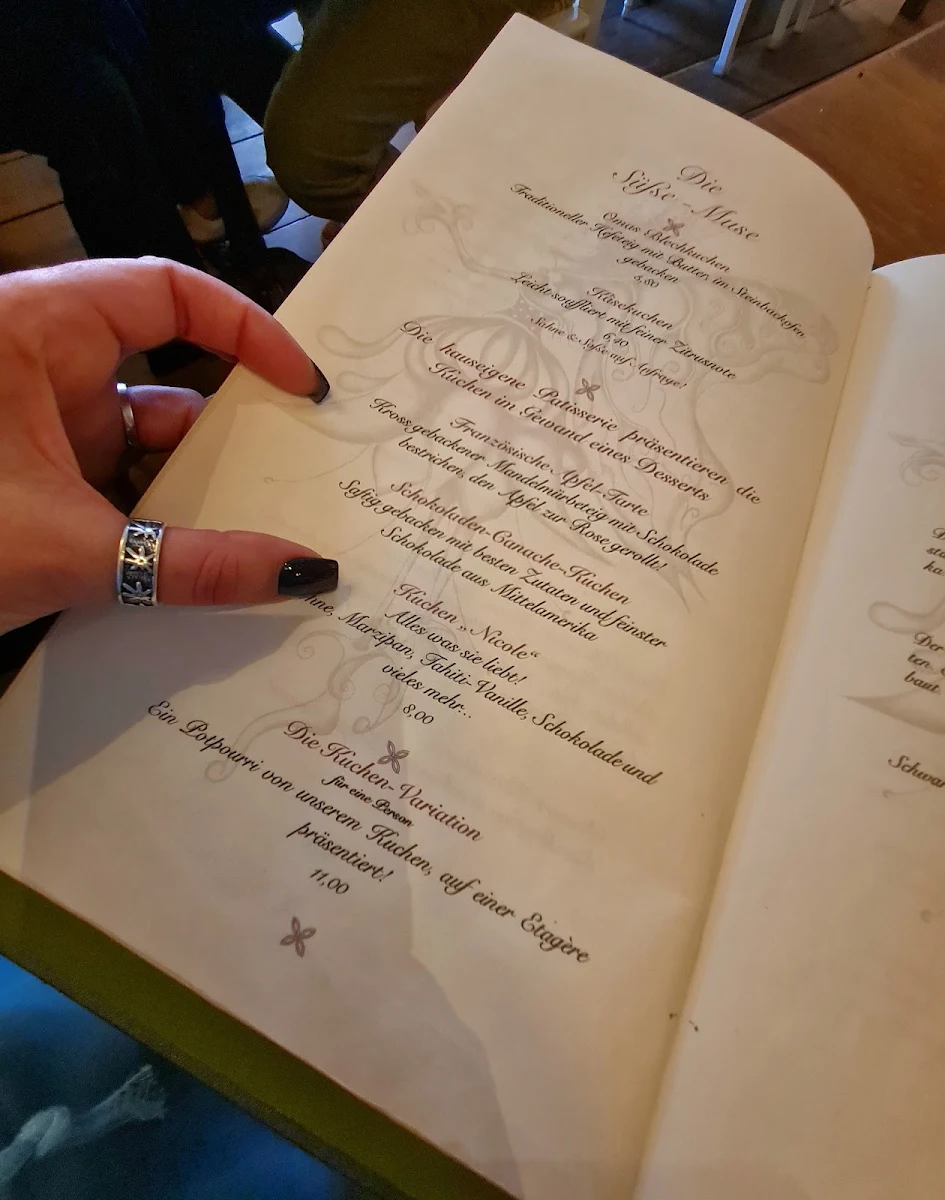 Die
Süße - Muse
Omas Blechkuchen
Traditioneller Hefeteig mit Butter, im Steinbackofen
gebacken
6,80
Käsekuchen
Leicht souffliert mit feiner Zitrusnote
6,40
Sahne & Soße auf Anfrage!
Die hauseigene Patisserie präsentieren die
Kuchen im Gewand eines Desserts
Französische Apfel-Tarte
Kross gebackener Mandelmürbeteig mit Schokolade
bestrichen, den Apfel zur Rose gerollt!
Schokoladen-Ganache-Kuchen
Saftig gebacken mit besten Zutaten und feinster
Schokolade aus Mittelamerika
Kuchen „Nicole“
Alles was sie liebt!
hne, Marzipan, Tahiti-Vanille, Schokolade und
vieles mehr...
8,00
Die Kuchen-Variation
für eine Person
Ein Potpourri von unserem Kuchen, auf einer Etagère
präsentiert!
11,00
Der
baut
Schwar